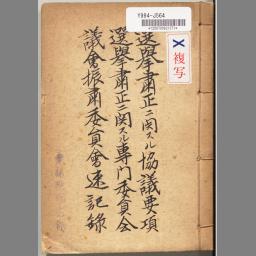 Y994-J564
複写
選挙肅正ニ関スル協議要項
選挙肅正ニ関スル専門委員会
議会振肅委員会速記録